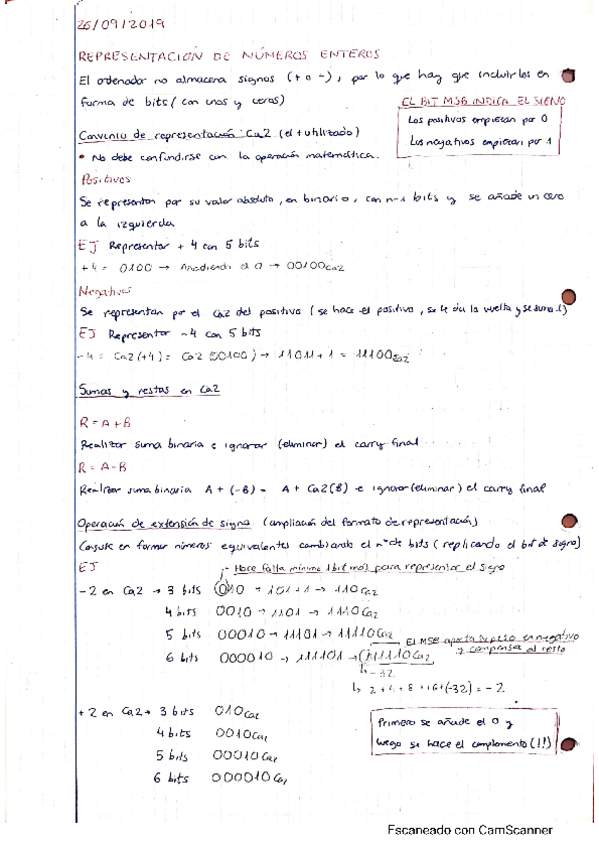 26/09/2019
REPRESENTACIÓN DE NÚMEROS ENTEROS
El ordenador no almacena signos (+ o -), por lo que hay que incluirlos en
forma de bits (con unos y ceros)
EL BIT MSB INDICA EL SIGNO
Los positivos empiezan por 0
Los negativos empiezan por 1
Convenio de representación Ca2 (el + utilizado)
• No debe confundirse con la operación matemática.
Positivos
Se representan por su valor absoluto, en binario, con n-1 bits y se añade un cero
a la izquierda
EJ Representar + 4 con 5 bits
+4 = 0100 → Añadiendo el 0 → 00100Ca2
Negativos
Se representan por el Ca2 del positivo (se hace el positivo, se le da la vuelta y se suma 1)
EJ Representar -4 con 5 bits
-4 = Ca2(+4) = Ca2(00100) → 11011+1 = 11100Ca2
Sumas y restas en Ca2
R = A+B
Realizar suma binaria e ignorar (eliminar) el carry final
R = A-B
Realizar suma binaria A + (-B) = A + Ca2(B) e ignorar (eliminar) el carry final
Operación de extensión de signo (ampliación del formato de representación)
Consiste en formar números equivalentes cambiando el nº de bits (replicando el bit de signo)
EJ
Hace falta mínimo 1 bit más para representar el signo
-2 en Ca2 → 3 bits 010 → 101+1 → 110Ca2
4 bits 0010 → 1101 → 1110Ca2
5 bits 00010 → 11101 → 11110Ca2
El MSB aporta su peso en negativo
y compensa el resto
6 bits 000010 → 111101 → 111110Ca2
↳ -32
↳ 2+4+8+16+(-32) = -2
+2 en Ca2 → 3 bits 010Ca2
4 bits 0010Ca2
5 bits 00010Ca2
6 bits 000010Ca2
Primero se añade el 0 y
luego se hace el complemento (!!)
Escaneado con CamScanner